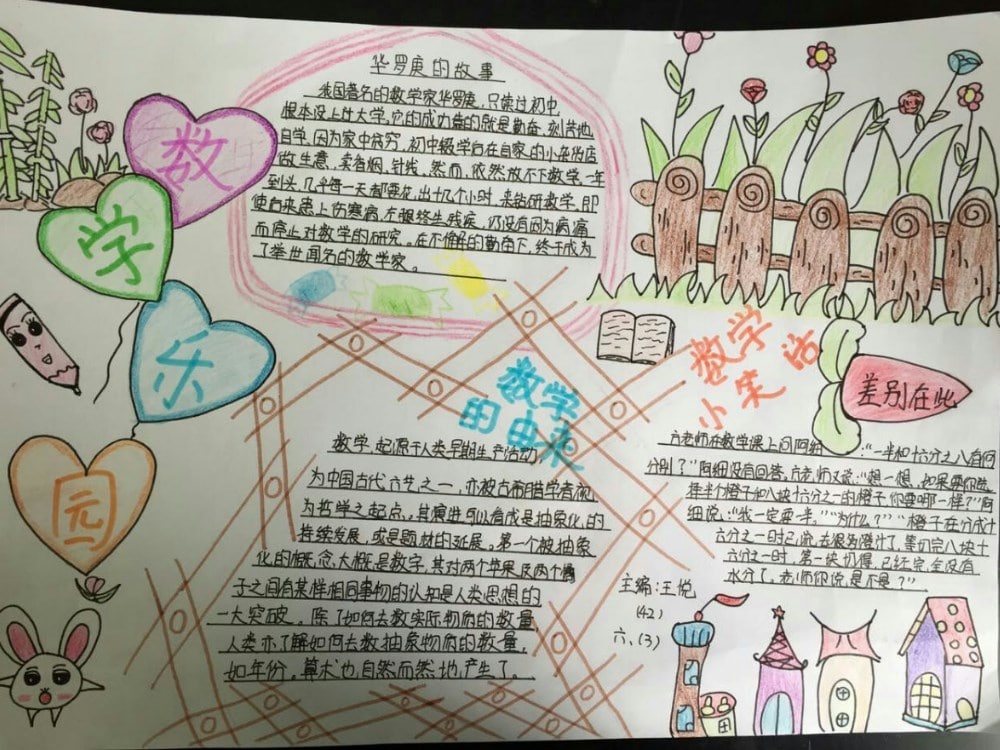 数
学
乐
园
华罗庚的故事
我国著名的数学家华罗庚,只读过初中,
根本没上过大学。它的成功靠的就是勤奋,刻苦地
自学,因为家中贫穷,初中辍学后在自家的小杂货店
做生意,卖香烟、针线,然而,依然放不下数学,一年
到头,几乎每一天都要花,出十几个小时,来钻研数学,即
使后来患上伤寒病,左腿终生残疾,仍没有因为病痛
而停止对数学的研究,在不懈的勤奋下,终于成为
了举世闻名的数学家。
数学
的由来
数学,起源于人类早期生产活动
为中国古代六艺之一,亦被古希腊学者视
为哲学之起点。其演进可以看成是抽象化的
持续发展,或是题材的延展。第一个被抽象
化的概念大概是数字,其对两个苹果及两个橘
子之间有某样相同事物的认知是人类思想的
一大突破。除了如何去数实际物质的数量,
人类亦了解如何去数抽象物质的数量,
如年份。算术也自然而然地产生了。
数学
小笑话
差别在此
方老师在数学课上问阿细:“一半和十六分之八有何
分别?”阿细没有回答,方老师又说:“想一想,如果要你选
择半个橙子和八块十六分之一的橙子,你要哪一样?”阿
细说:“我一定要一半。”“为什么?”“橙子在分成十
六分之一时已流去很多橙汁了,等切完八块十
六分之一时,第一块扔得,已经完全没有
水分了,老师你说是不是?”
主编:王悦
(42)
六、(3)